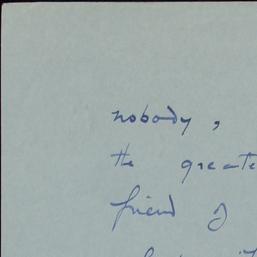 nobody,
the greate
friend of